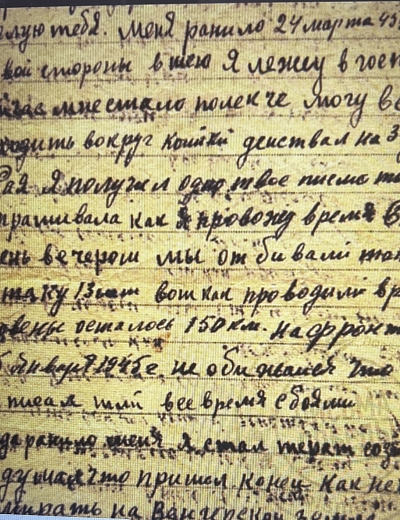 лую тебя. Меня ранило 24 марта 45
вой стороны в шею Я лежу в госп
мне стало полекче могу в
ходить вокруг койки действвал на 3
Рая Я получил одно твое писмо
прашивала как Я провожу время
ень вечером мы от би вали
таку 13 вот как про водили вр
осталось 150 км. на фронт
Январ 1945 г не оби жайся Что
писал все время с боями
да ранило меня Я стал терат созн
думал что пришел конец как не
мирать на Венгерской